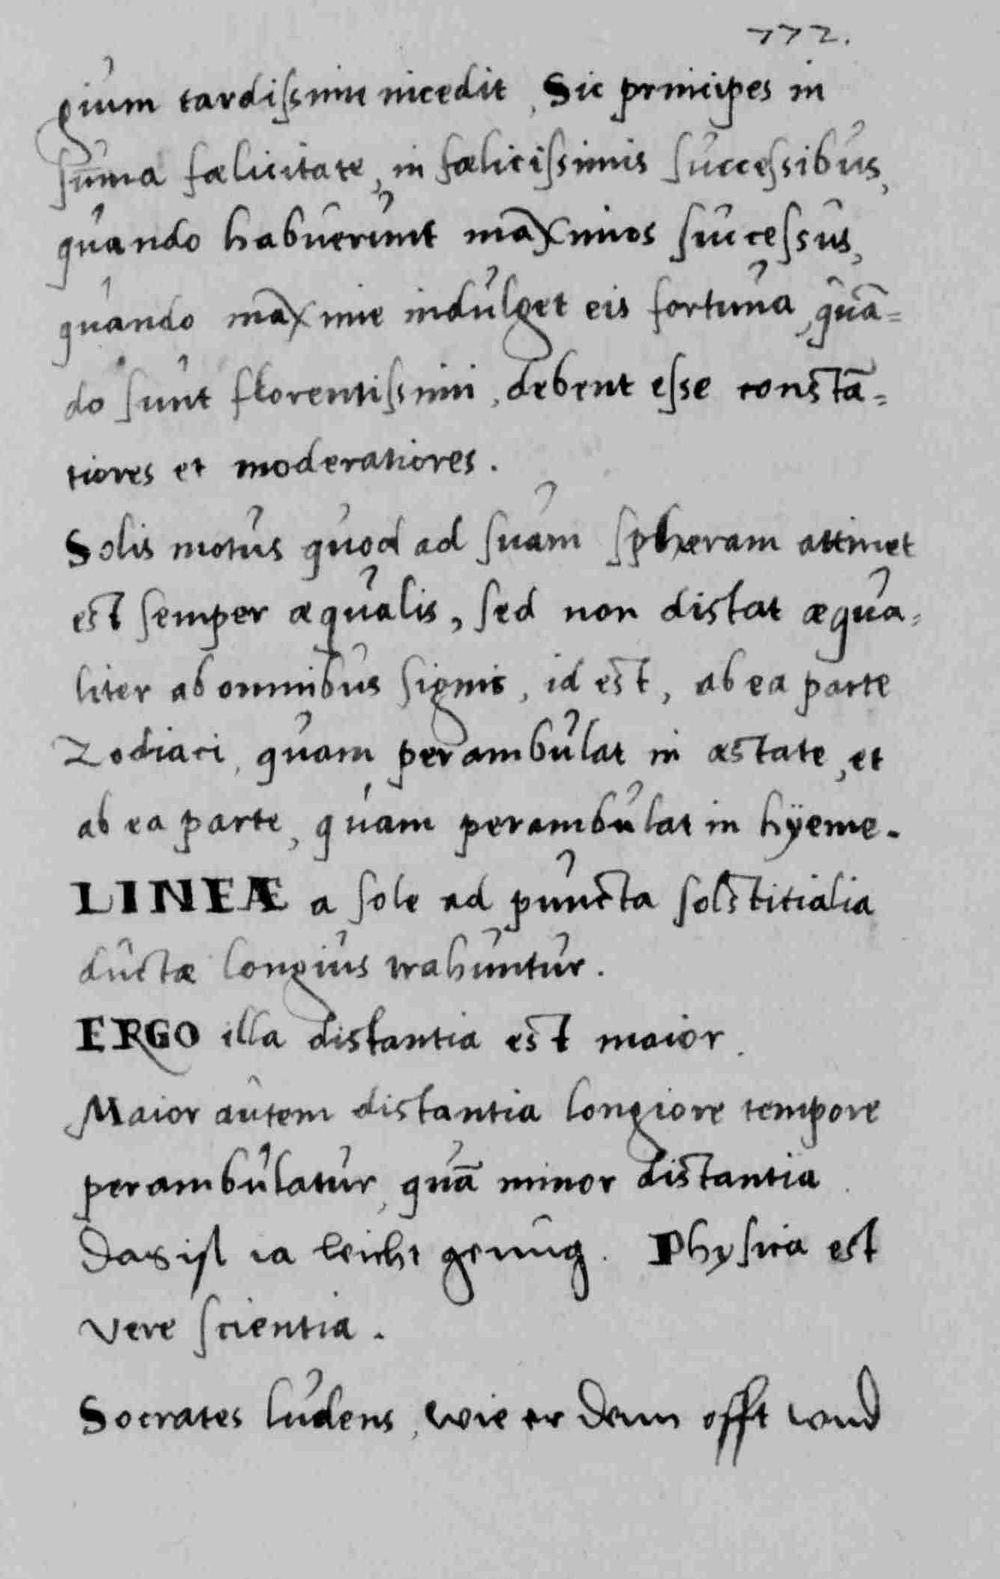 772.
gium tardissime incedit, Sic principes in
sūma fœlicitate, in fœlicissimis successibus,
quando habuerunt maximos successus,
quando maxime indulget eis fortuna, quā=
do sunt florentissimi, debent esse constā=
tiores et moderatiores.
Solis motus quod ad suam sphæram attinet
est semper æqualis, sed non distat æqua=
liter ab omnibus signis, id est, ab ea parte
Zodiaci, quam perambulat in æstate, et
ab ea parte, quam perambulat in hÿeme.
LINEÆ a sole ad puncta solstitialia
ductæ longius trahuntur.
ERGO illa distantia est maior.
Maior autem distantia longiore tempore
perambulatur, quā minor distantia.
Das ist ia leicht genug. Physica est
vere scientia.
Socrates ludens, wie er denn offt vnd